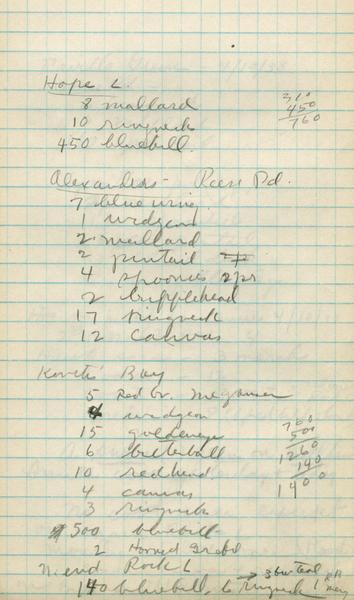 Hope L.
8 mallard 310
10 ringneck 450
450 bluebill. 760
Alexanders - Reese Pd.
7 blue wing.
1 widgeon
2 mallard
2 pintail
4 spoonies 2 prs
2 bufflehead
17 ringneck
12 canvas
Bay
5 Red Br. Merganser
4 widgeon 760
15 goldeneye 500
6 butterball 1260
10 redhead 140
4 canvas 1400
3 ringneck
500 bluebill
2 Horned Grebe
N. end Rock L → 3 bw Teal
140 bluebill 6 ringneck 1